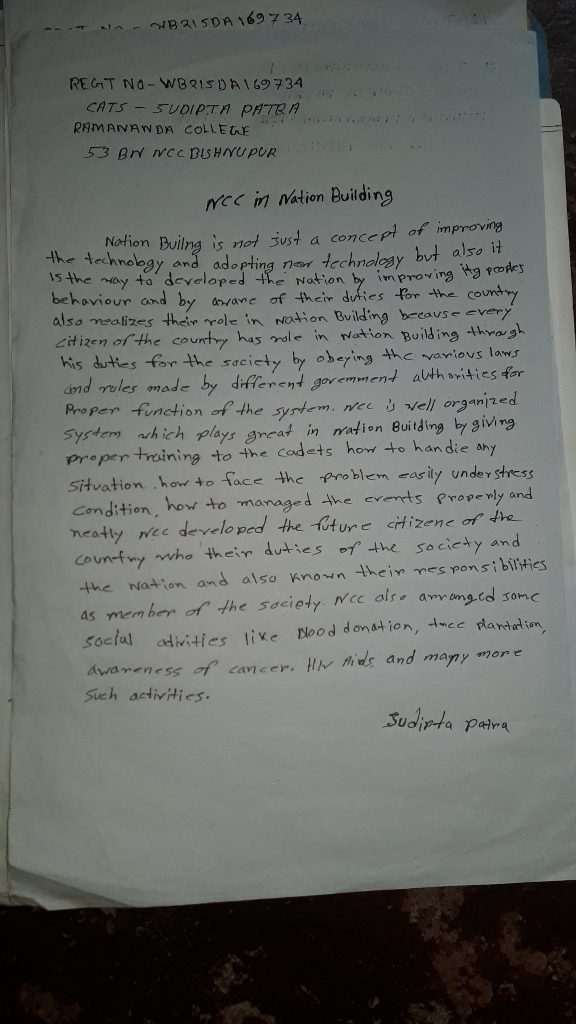 WB21SDA169734
REGT NO-WB21SDA169734
CATS - SUDIPTA PATRA
RAMANANDA COLLEGE
53 BN NCC BISHNUPUR
NCC in Nation Building
Nation Builng is not just a concept of improving
the technology and adopting new technology but also it
is the way to developed the Nation by improving its peoples
behaviour and by aware of their duties for the country
also realizes their role in Nation Building because every
citizen of the country has role in Nation Building through
his duties for the society by obeying the various laws
and rules made by different government authorities for
Proper function of the system. NCC is well organized
System which plays great in Nation Building by giving
proper training to the cadets how to handle any
Situation. how to face the problem easily under stress
Condition, how to managed the events properly and
neatly NCC developed the future citizene of the
country who their duties of the society and
the Nation and also known their responsibilities
as member of the society. NCC also arranged some
social adivities like Blood donation, tree plantation,
Awareness of cancer, HIV Aids, and many more
such activities.
Sudipta Patra